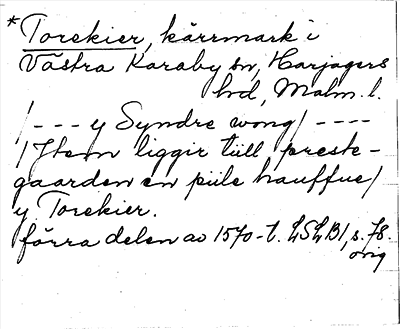 *Torekier, kärrmark i
Västra Karaby sn, Harjagers
hd, Malm. l.
/ - - - y Syndre wong / - - - -
/ Item liggir tiill preste-
gaarden en piile hauffue /
y Torekier.
förra delen av 1570-t. LSLB1, s. 78.
orig